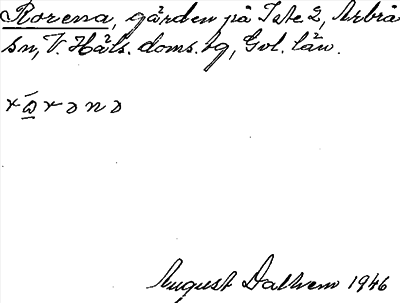 Rorena, gården på Tåte 2, Arbrå
sn, V. Häls. doms. tg, Gvl. län.
August Dalhem 1946